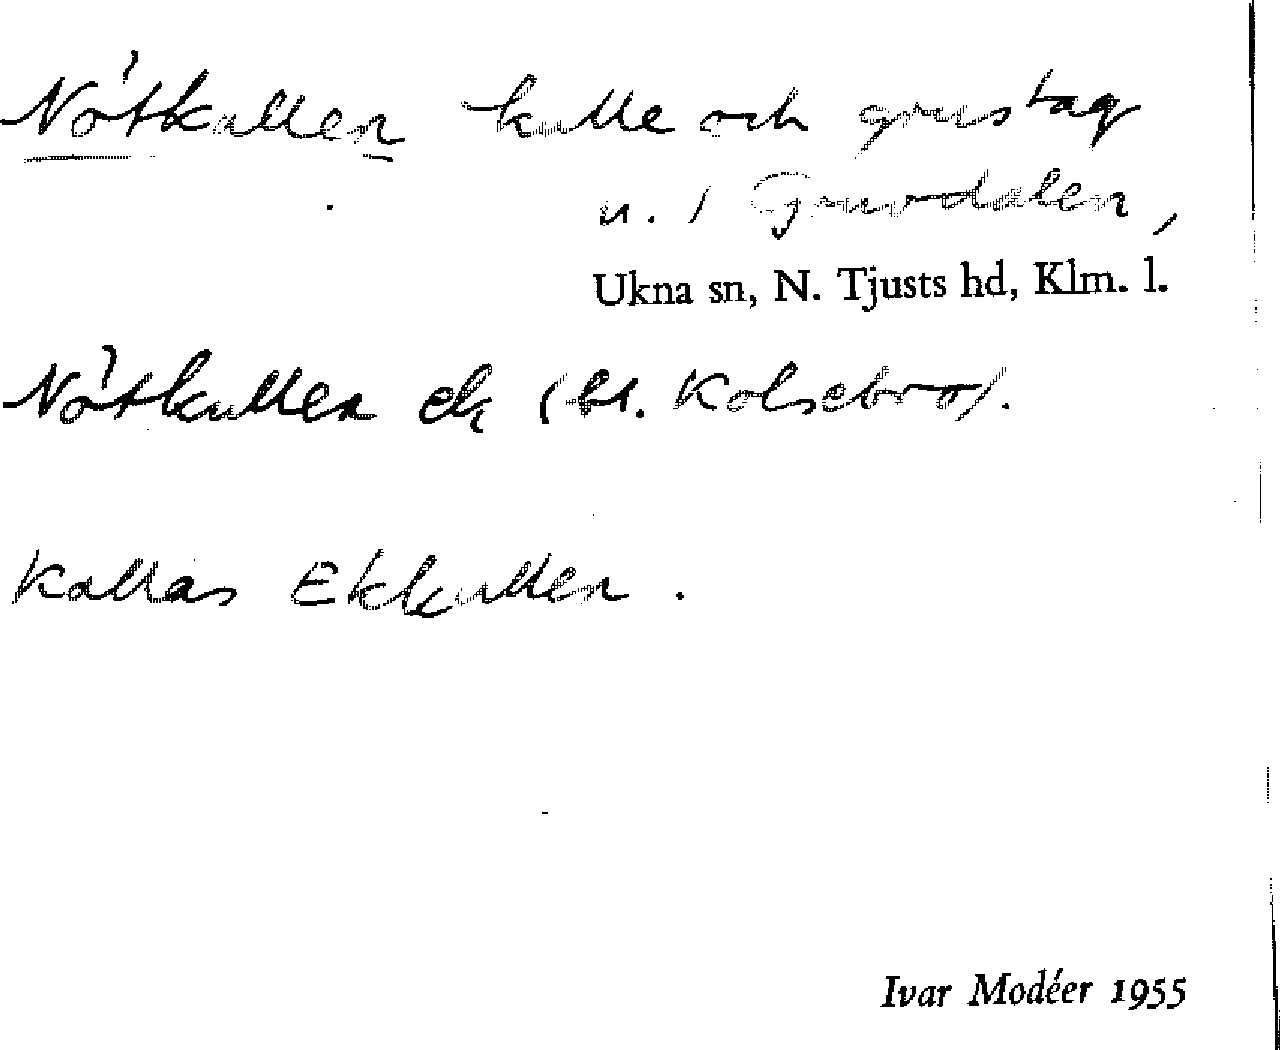 Nötkullen kulle och grustag
u. / Gruvdalen,
Ukna sn, N. Tjusts hd, Klm. l.
Nötkullen ek (bl. Kolsebro).
Kallas Ekkullen.
Ivar Modéer 1955